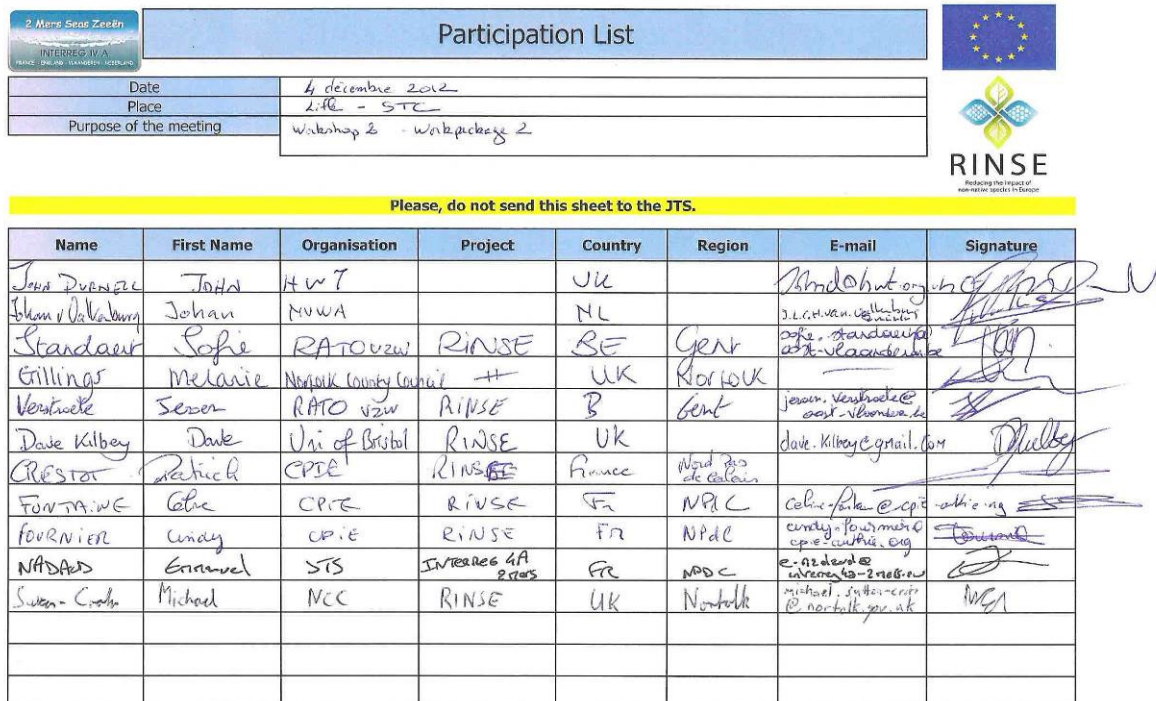 2 Mers Seas Zeeën
INTERREG IV A
FRANCE - ENGLAND - VLAANDEREN - NEDERLAND
Participation List
Date 4 décembre 2012
Place Lille - STC
Purpose of the meeting Workshop 2 - Workpackage 2
RINSE
Reducing the impact of
non-native species in Europe
Please, do not send this sheet to the JTS.
Name First Name Organisation Project Country Region E-mail Signature
JOHN DURNELL JOHN HWT UK
Johan v Valkenburg Johan NVWA NL
Standaert Sofie RATO vzw RINSE BE Gent sofie.standaert@
oost-vlaanderen.be
Gillings Melanie Norfolk County Council UK NORFOLK
Verstraete Jeroen RATO vzw RINSE B Gent jeroen.verstraete@
oost-vlaanderen.be
Dave Kilbey Dave Uni of Bristol RINSE UK dave.kilbey@gmail.com
CRESTOT Patrick CPIE RINSE France Nord Pas
de Calais
FONTAINE CPIE RINSE Fr NPdC
FOURNIER Cindy CPIE RINSE FR NPdC cindy.fournier@
cpie-authie.org
NADAUD Emmanuel INTERREG 4A
2 mers FR NPDC
Michael NCC RINSE UK Norfolk
@norfolk.gov.uk